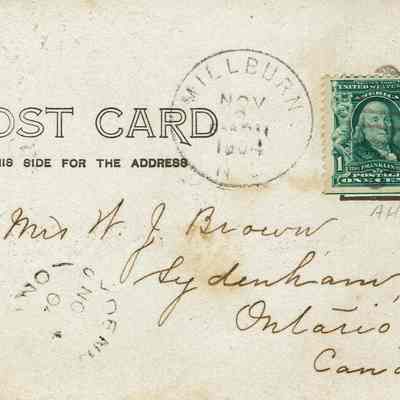 OST CARD
HIS SIDE FOR THE ADDRESS
MILLBURN
NOV
1904
N
UNITED STATES
AMERICA
1
FRANKLIN
POSTAGE
ONE CENT
AH
Mrs W. J. Brown
Sydenham,
Ontario
Cana
ONT